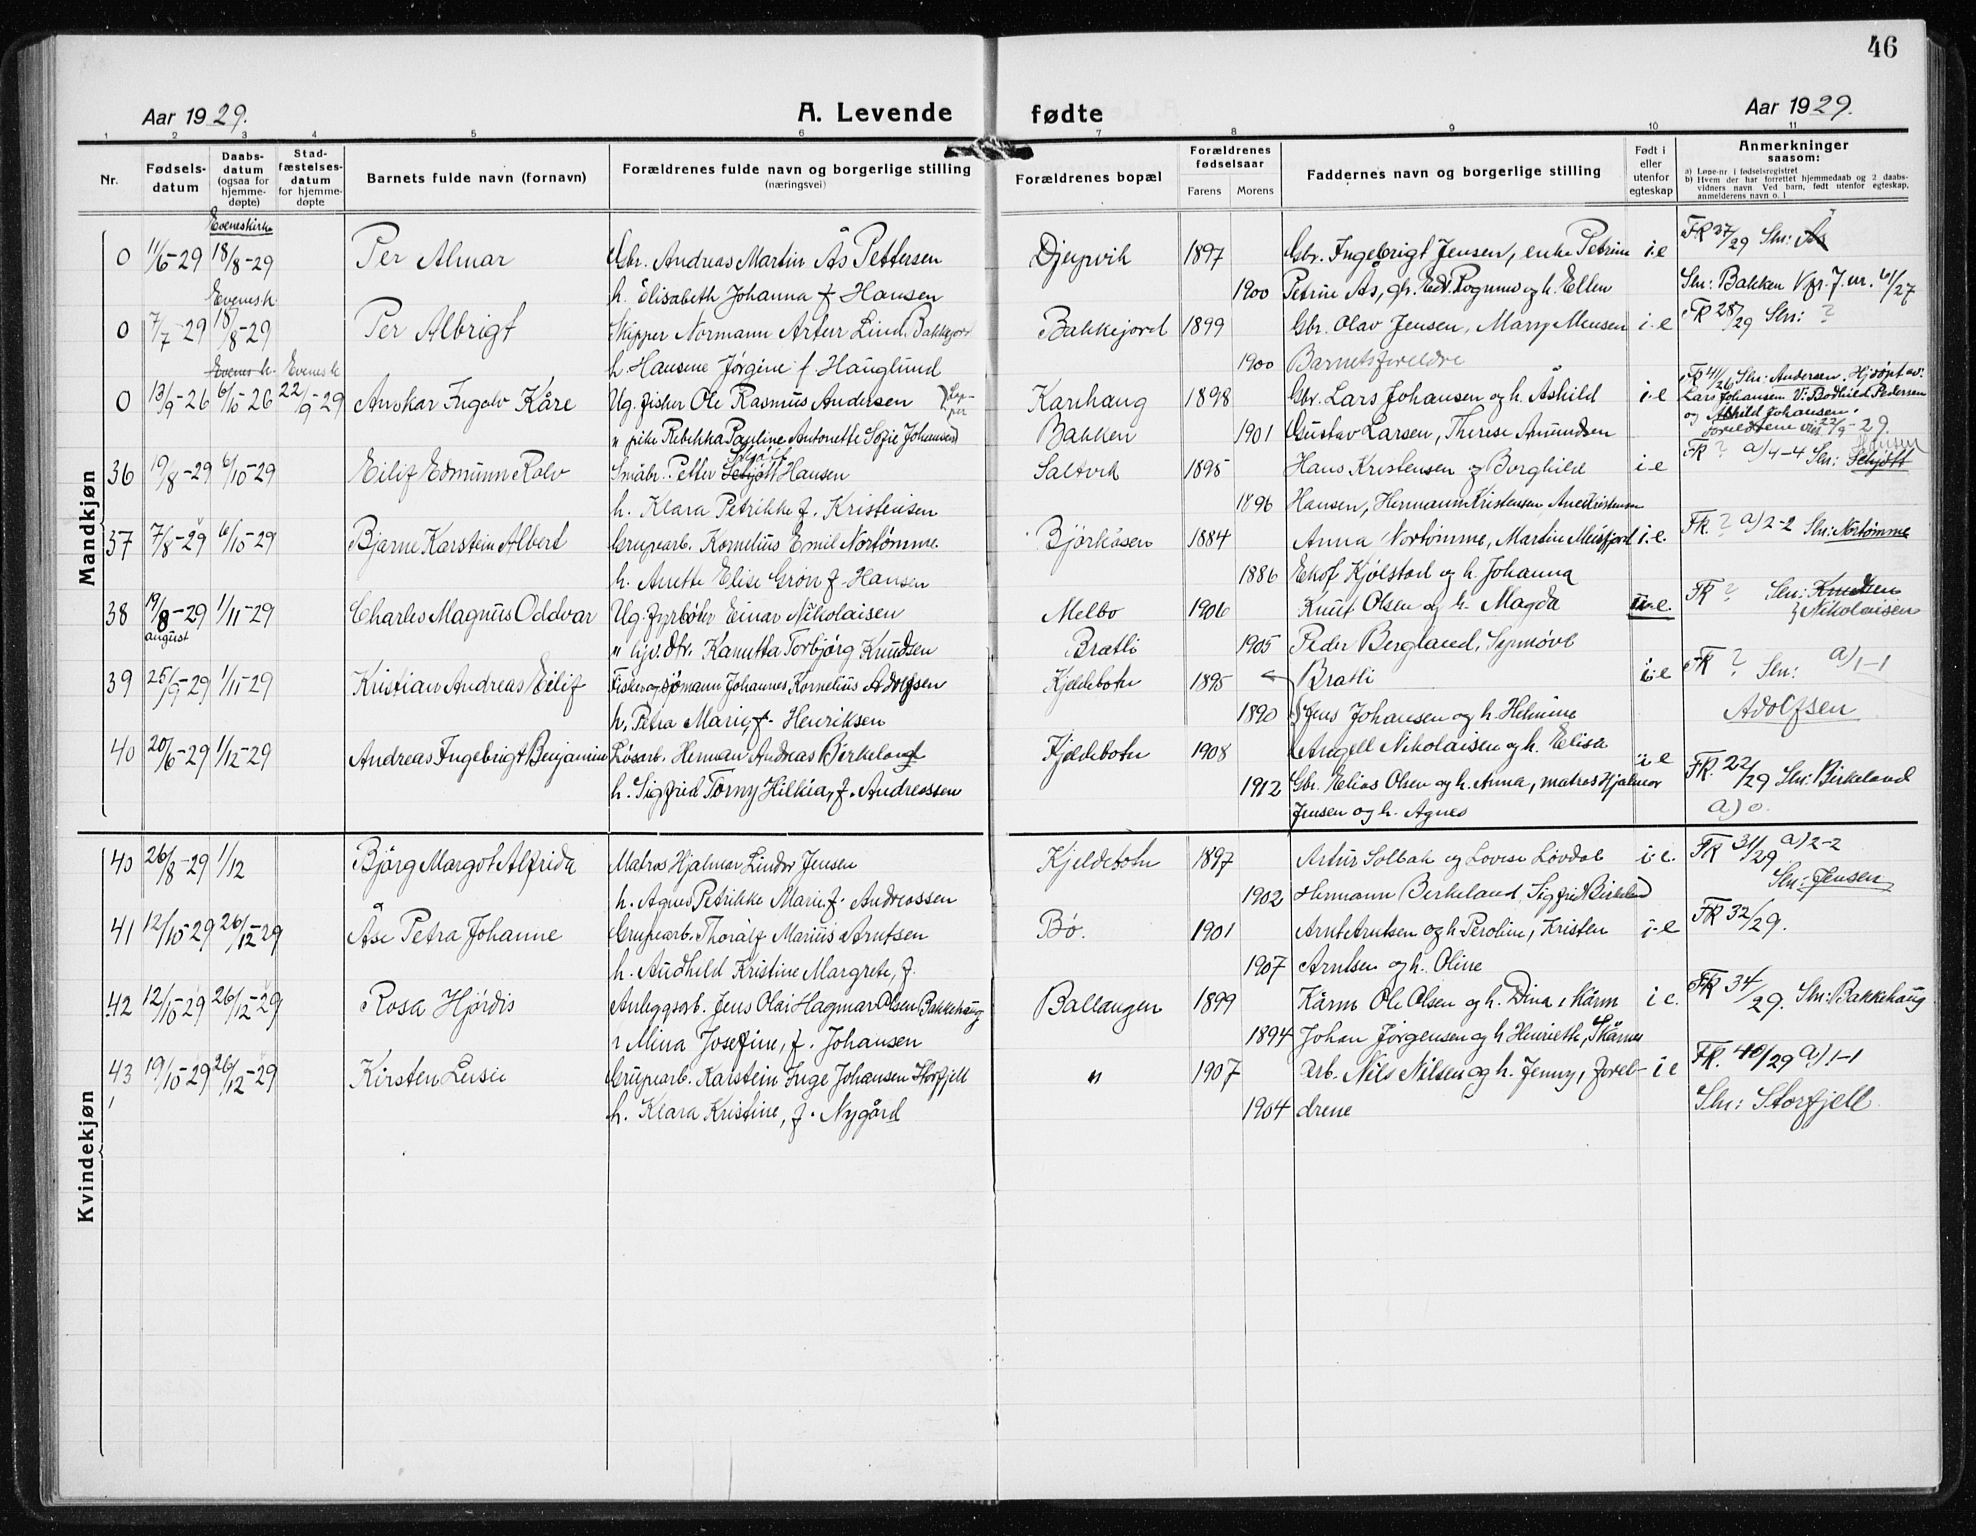 46
Aar 1929. A. Levende fødte Aar 1929.
1 2 3 4 5 6 7 8 9 10 11
Nr. Fødselsdatum Daabsdatum (ogsaa for hjemmedøpte) Stadfæstelsesdatum for hjemmedøpte Barnets fulde navn (fornavn) Forældrenes fulde navn og borgerlige stilling (næringsvei) Forældrenes bopæl Forældrenes fødselsaar Farens Morens Faddernes navn og borgerlige stilling Født i eller utenfor egteskap Anmerkninger saasom:
a) Løpe-nr i fødselsregistret
b) Hvem der har forrettet hjemmedaab og 2 daabsvidners navn Ved barn, født utenfor egteskap, anmelderens navn o. l
Mandkjøn
Eveneskirke
0 11/6-29 18/8-29 Per Almar Gbr. Andreas Martin Ås Pettersen Djupvik 1897 Gbr. Ingebrigt Jensen, enke Petrine i-e FR 37/29 Sln: Ås
h. Elisabeth Johanna f. Hansen 1900 Petrine Ås, gr. Edv. Rognmo og h. Ellen Sln: Bakken Vpr. J. nr. 61/27
Evenesk.
0 7/7-29 18/8-29 Per Albrigt Skipper Normann Artur Lind. Bakkejord Bakkejord 1899 Gbr. Olav Jensen, Mary Mensen i-e FR 28/29 Sln: ?
h. Hansine Jørgine f. Hauglund 1900 Barnets foreldre
Evenes k. Evenesk
0 13/9-26 6/10-26 22/9-29 Anskar Ingolv Kåre Ug. fisker Ole Rasmus Andersen Karihaug 1898 Gbr. Lars Johansen og h. Åshild i-e FR 41/26 Sln: Andersen. Hjdøpt av:
Lars Johansen V: Bodhild Pedersen
" pike Rebekka Pauline Antonette Sofie Johansen Bakken 1901 Gustav Larsen, Therese Amundsen og Åshild Johansen.
Foreldrene vig. 22/9-29.
36 19/8-29 6/10-29 Eilif Edmunn Rolv Småbr. Petter Schjött Hansen Saltvik 1895 Hans Kristensen og Borghild i-e FR ? a) 4-4 Sln: Schjött
h. Klara Petrikke f. Kristensen 1896 Hansen, Hermann Kristensen Anedristensen
37 7/8-29 6/10-29 Bjarne Karstein Albert Gruparb. Kornelius Emil Nortømme. Björkåsen 1884 Anna Nortømme, Martin Meisfjord i-e. FR ? a) 2-2 Sln: Nortømme
h. Anette Elise Grøn f. Hansen 1886 Enof Kjølstad og h. Johanna
38 19/8-29 1/11-29 Charles Magnus Oddvar Ug. fyrbøter Einar Nikolaisen Melbo 1906 Knut Olsen og h. Magda u-e. FR ? Sln: Knudsen
august " hjv. dtr. Kanutta Torbjørg Knudsen Bratli 1905 Peder Bergland, Synnøve Nikolaisen
39 25/9-29 1/11-29 Kristian Andreas Eilif Fisker og sjømann Johannes Kornelius Adolfsen Kjeldebotn 1895 Bratli i-e FR ? Sln: a) 1-1
h. Petra Marie, f. Henriksen 1890 Jens Johansen og h. Helmine Adolfsen
40 20/6-29 1/12-29 Andreas Ingebrigt Benjamin Løsarb. Herman Andreas Birkeland Kjeldebotn 1908 Angell Nikolaisen og h. Elisa i-e FR. 22/29 Sln: Birkeland
h. Sigfrid Torny Hilkia, f. Andreassen 1912 Gbr. Helias Olsen og h. Anna, matros Hjalmar a) 0.
Jensen og h. Agnes
Kvindekjøn
40 26/8-29 1/12 Björg Margot Alfrida Matros Hjalmar Linder Jensen Kjeldebotn 1897 Artur Solbak og Lovise Løvdal i-e. FR 31/29 a) 2-2
h. Agnes Petrikke Marie f. Andreassen 1902 Hermann Birkeland, Sigfrid Birkeland Sln: Jensen
41 12/10-29 26/12-29 Åse Petra Johanne Grupearb. Thoralf Marius Arntsen Bø. 1901 Arnt Arntsen og h. Peroline, Kristen i-e FR 32/29.
h. Audhild Kristine Margrete, f. 1907 Arntsen og h. Oline
42 12/10-29 26/12-29 Rosa Hjördis Anleggsarb. Jens Olai Hagmar Olsen Bakkehaug Ballangen 1899 Kårm Ole Olsen og h. Dina, Kårm i e. FR 34/29. Sln: Bakkehaug
h Mina Josefine, f. Johansen 1894 Johan Jørgensen og h Henriette, Skårnes
43 19/10-29 26/12-29 Kirsten Lusie Grupearb. Karstein Inge Johansen Storfjell " 1907 arb. Nils Nilsen og h. Jenny, forel- i e FR. 40/29 a) 1-1
h. Klara Kristine, f. Nygård 1904 drene Sln: Storfjell.